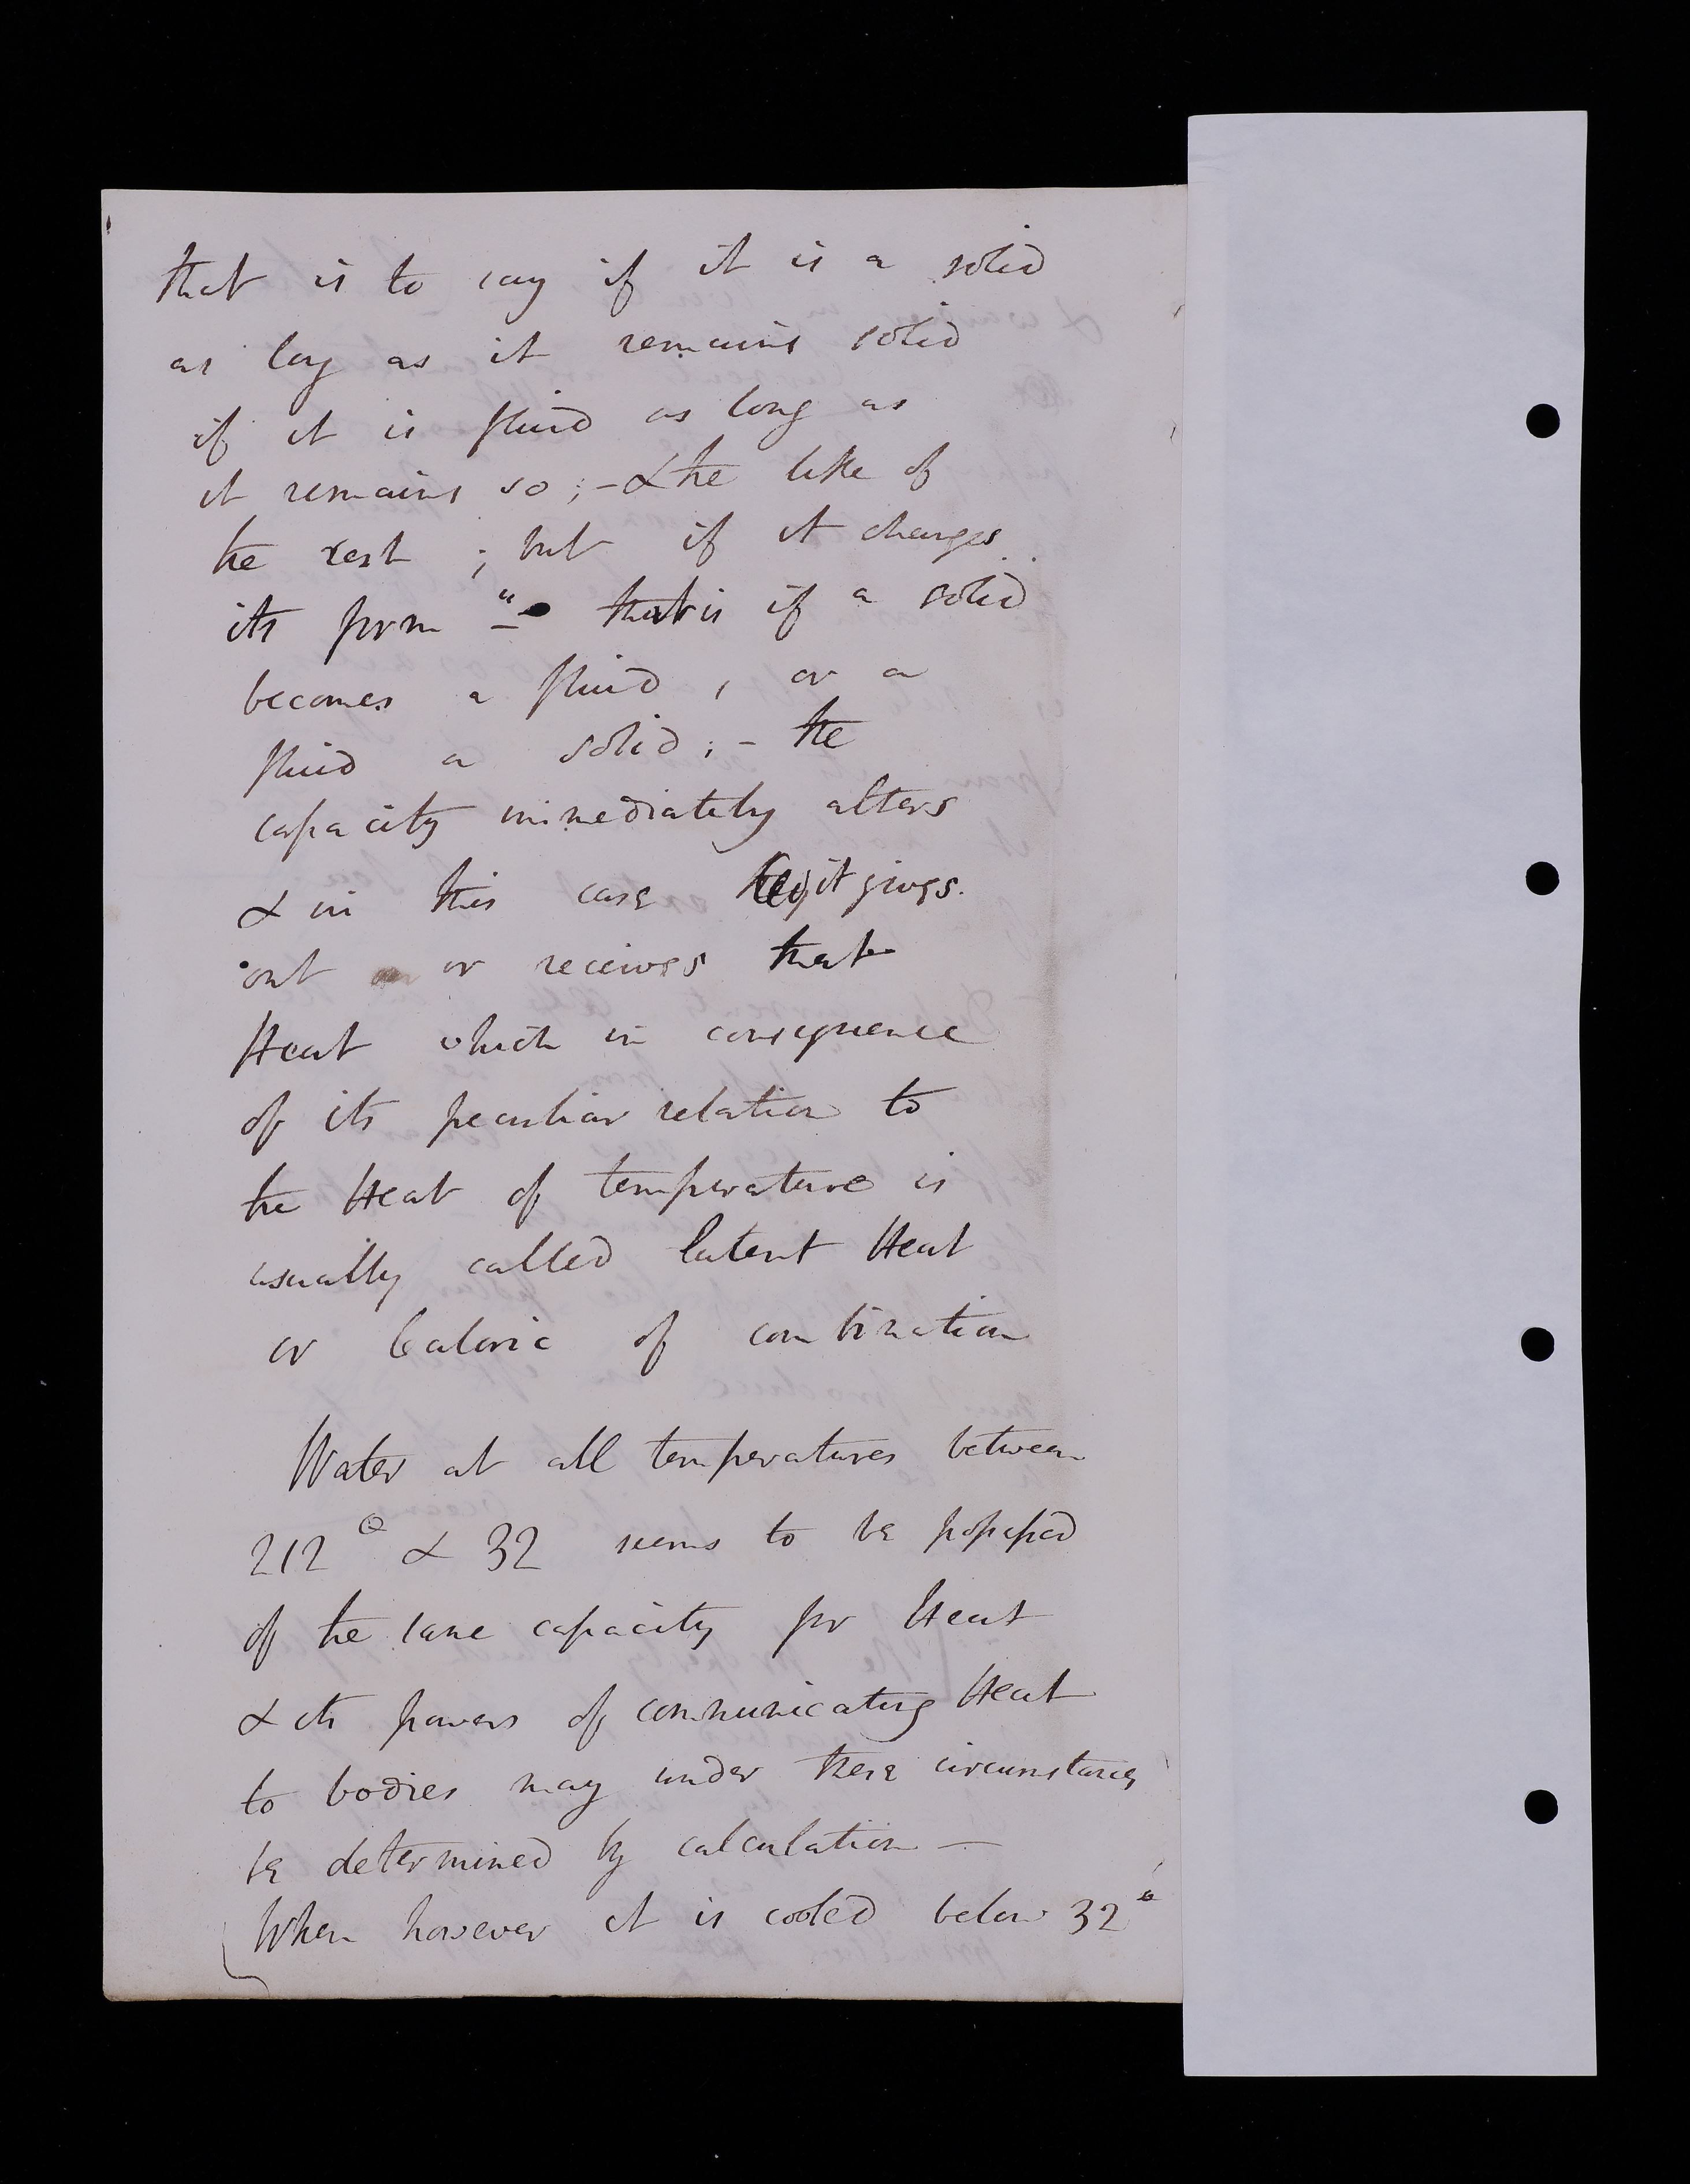 that is to say if it is a solid
as long as it remains solid
if it is fluid as long as
it remains so; - & the like of
the rest ; but if it changes
its form - that is if a solid
becomes a fluid , or a
fluid a solid; - the
capacity immediately alters
& in this case it gives
out or receives that
Heat which in consequence
of its peculiar relation to
the Heat of temperature is
usually called latent Heat
or Caloric of combination
Water at all temperatures between
212° & 32 seems to be possessed
of the same capacity for Heat
& its powers of communicating Heat
to bodies may under these circumstances
be determined by calculation —
When however it is cooled below 32°